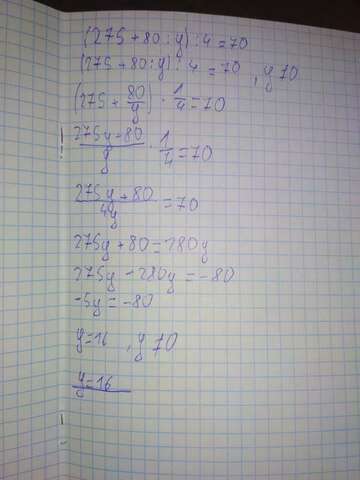 (275 + 80 : y) : 4 = 70
(275 + 80 : y) : 4 = 70 , y ≠ 0
(275 + 80/y) · 1/4 = 70
! (275y + 80)/y · 1/4 = 70
(275y + 80)/4y = 70
275y + 80 = 280y
275y - 280y = -80
-5y = -80
y = 16 , y ≠ 0
y = 16